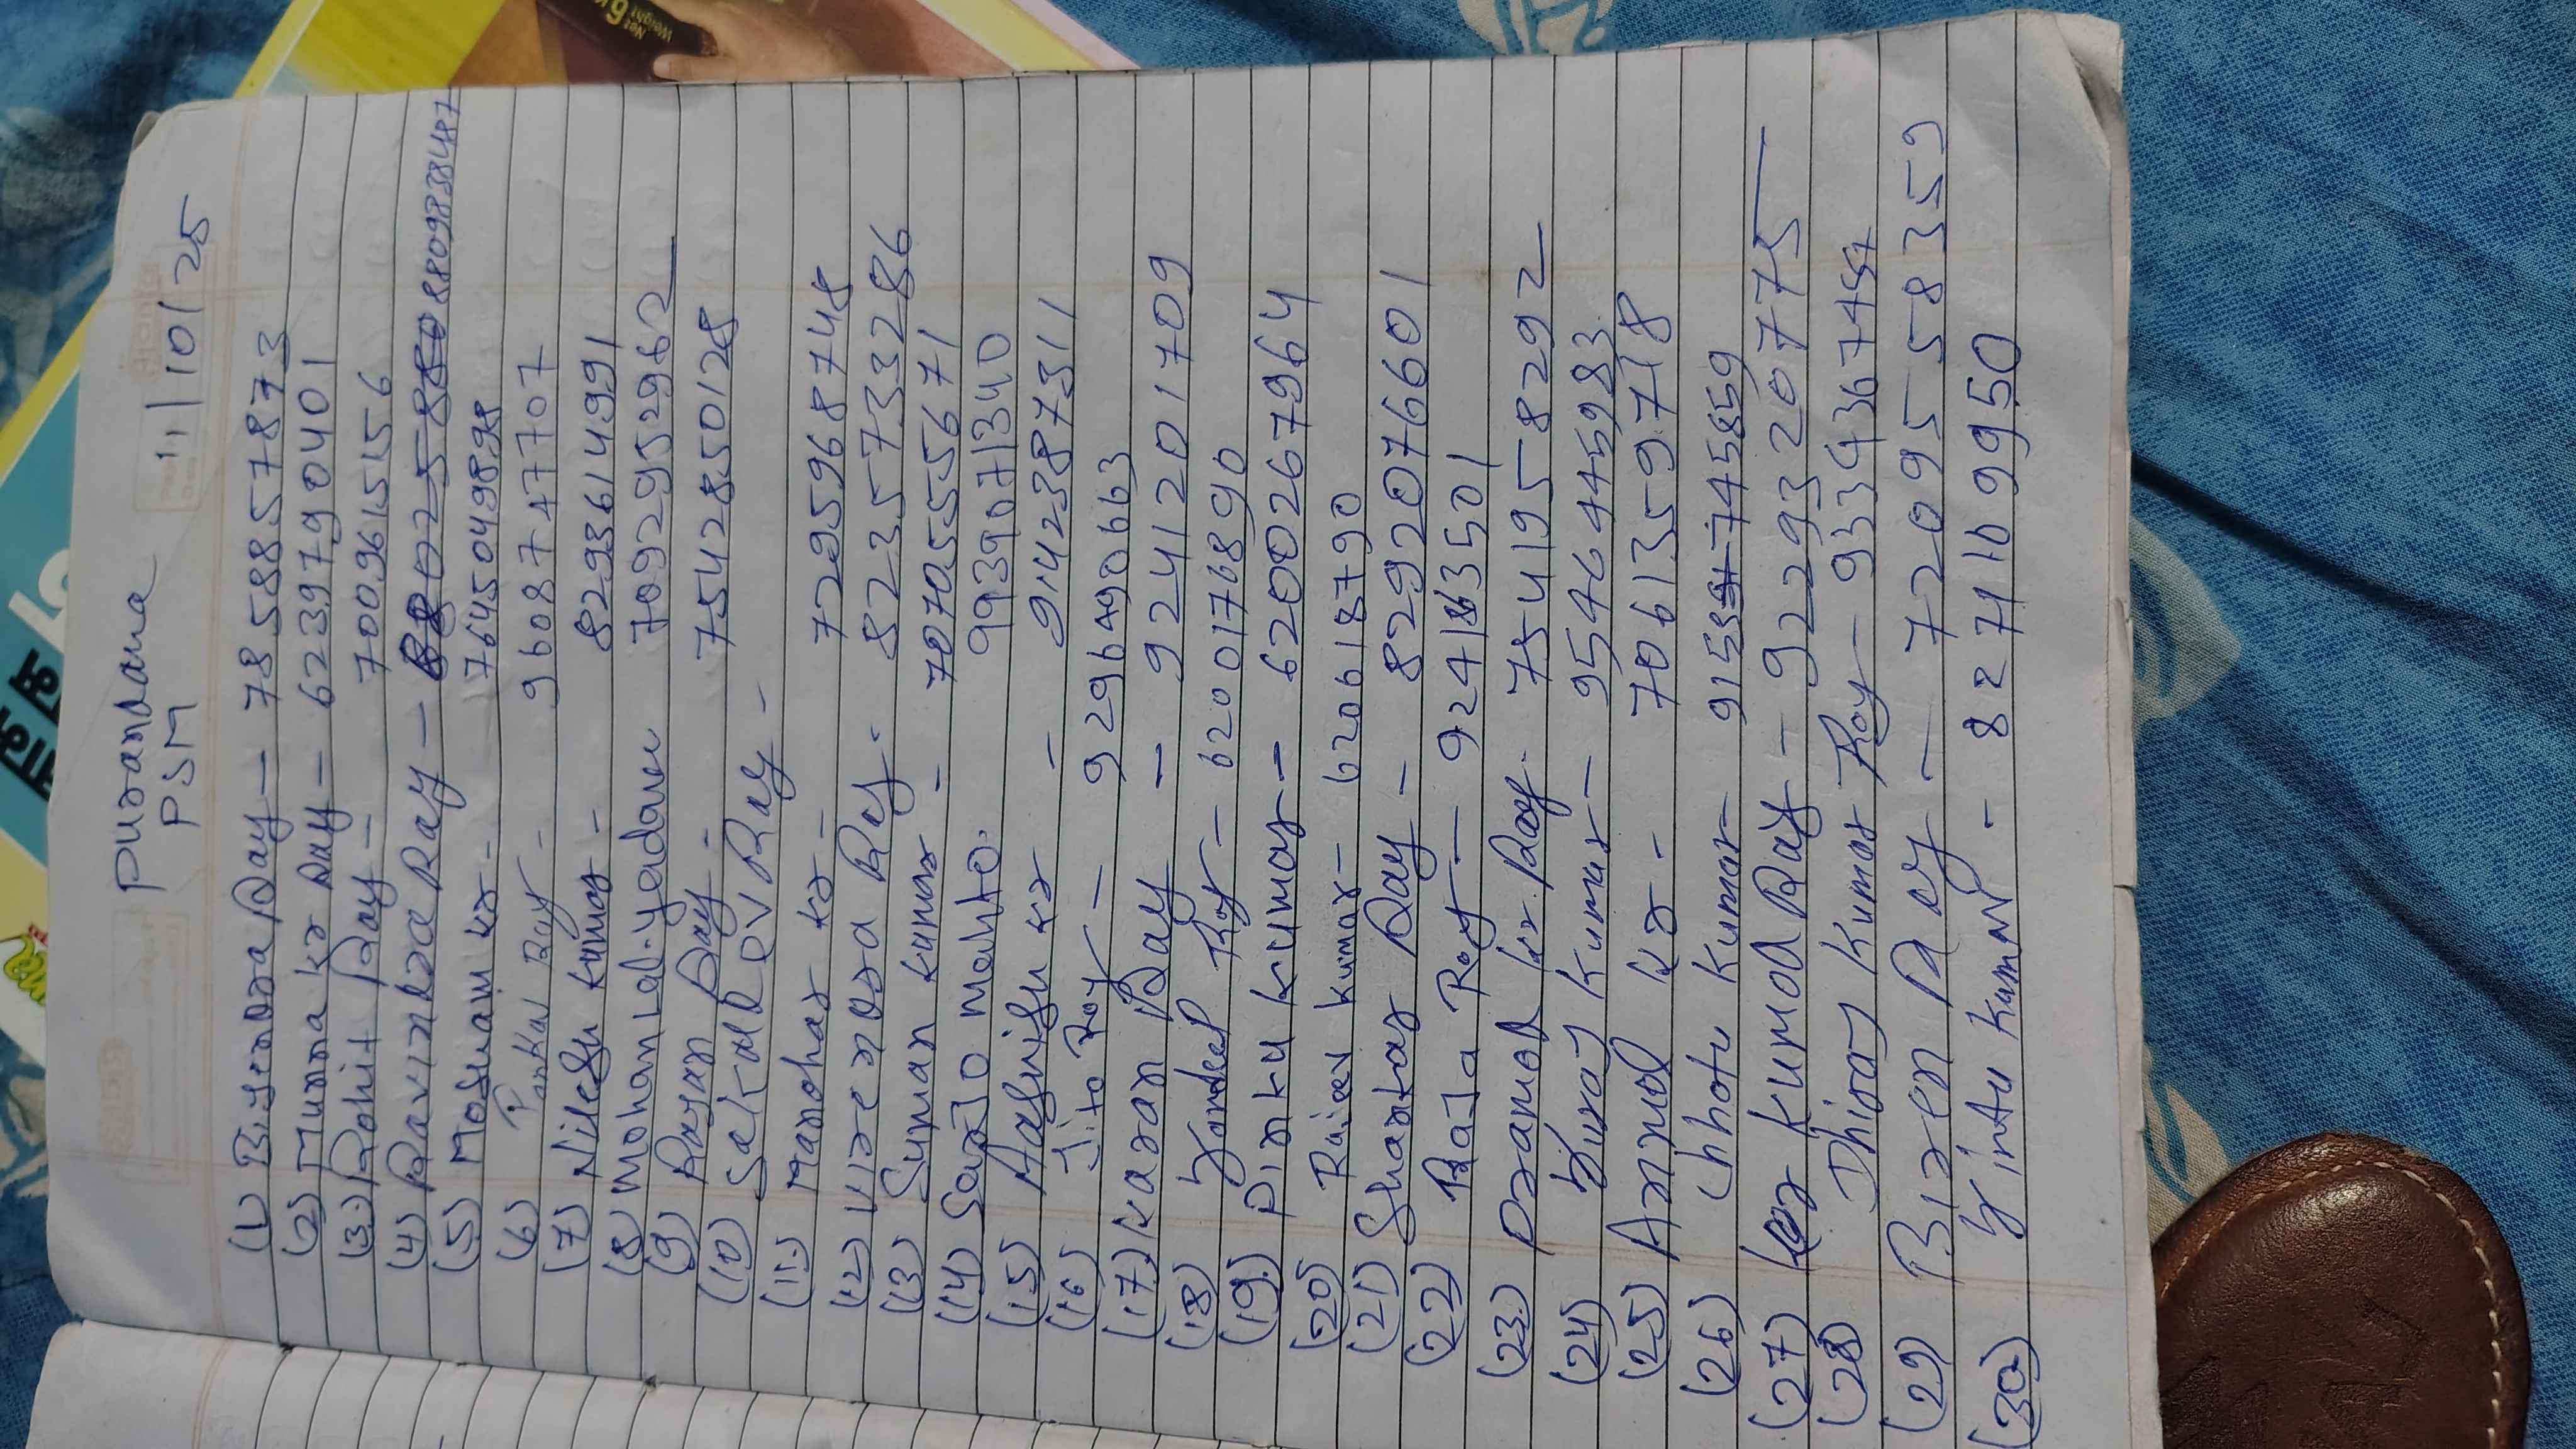 Purandana
PSM
11/10/25
(1) Bijendra Ray — 7858857873
(2) Munna kr Ray — 6239790401
(3) Rohit Ray — 7009615156
(4) Ravindra Ray — 8809838487
(5) kr - 7645049898
(6) Pankaj Ray - 9608747707
(7) Nilesh kumar - 8293614991
(8) Mohan Lal yadav 7092952962
(9) Rajan Ray - 7542850128
(10) Sakaldev Ray -
(11) Manohar kr - 7295968748
(12) Virendra Ray - 8235733286
(13) Suman kumar - 7070555671
(14) mahto. 9939071340
(15) kr - 9142387311
(16) Jito Roy — 9296490663
(17) karan Ray — 9241201709
(18) Roy — 6200176890
(19) Pinku kumar — 6200267964
(20) Rajeev kumar — 620618790
(21) Shankar Ray - 8292076601
(22) Raja Roy — 924163501
(23) Pramod kr. Roy. 7541958292
(24) kumar — 9546445983
(25) Anmol kr - 7061359718
(26) Chhotu kumar —
(27) kumod Ray — 9229320775
(28) Dhiraj Kumar Roy —
(29) Biren Ray — 7209558359
(30) kumar - 8271099950
Net
Weight